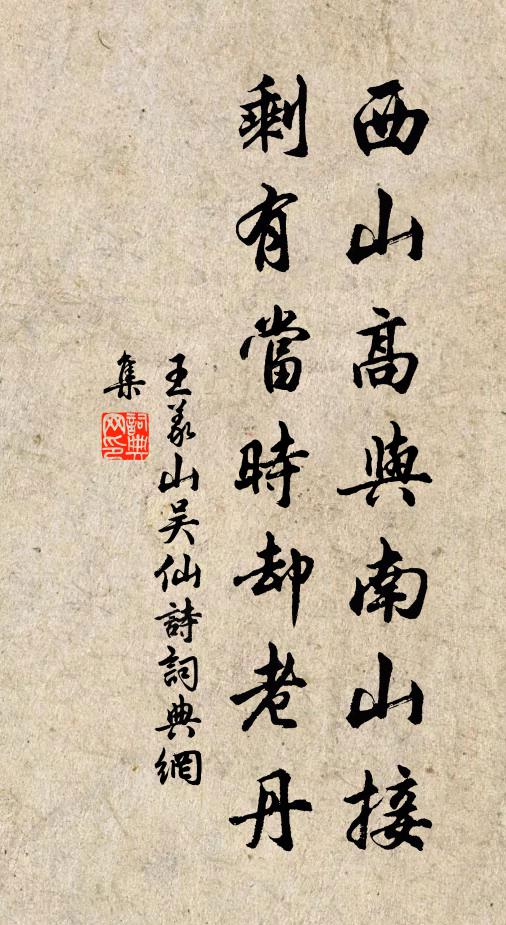 西山高與南山接
剩有當時却老丹
王義山吴仙詩詞典網
集
詞典網印